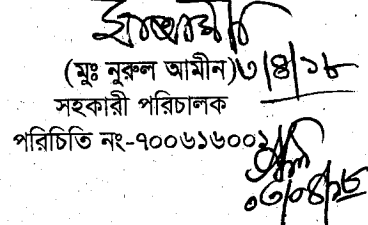 (মুঃ নুরুল আমীন) ৩/৪/১৮
সহকারী পরিচালক
পরিচিতি নং-৭০০৬১৬০০১
০৩/০৪/১৮